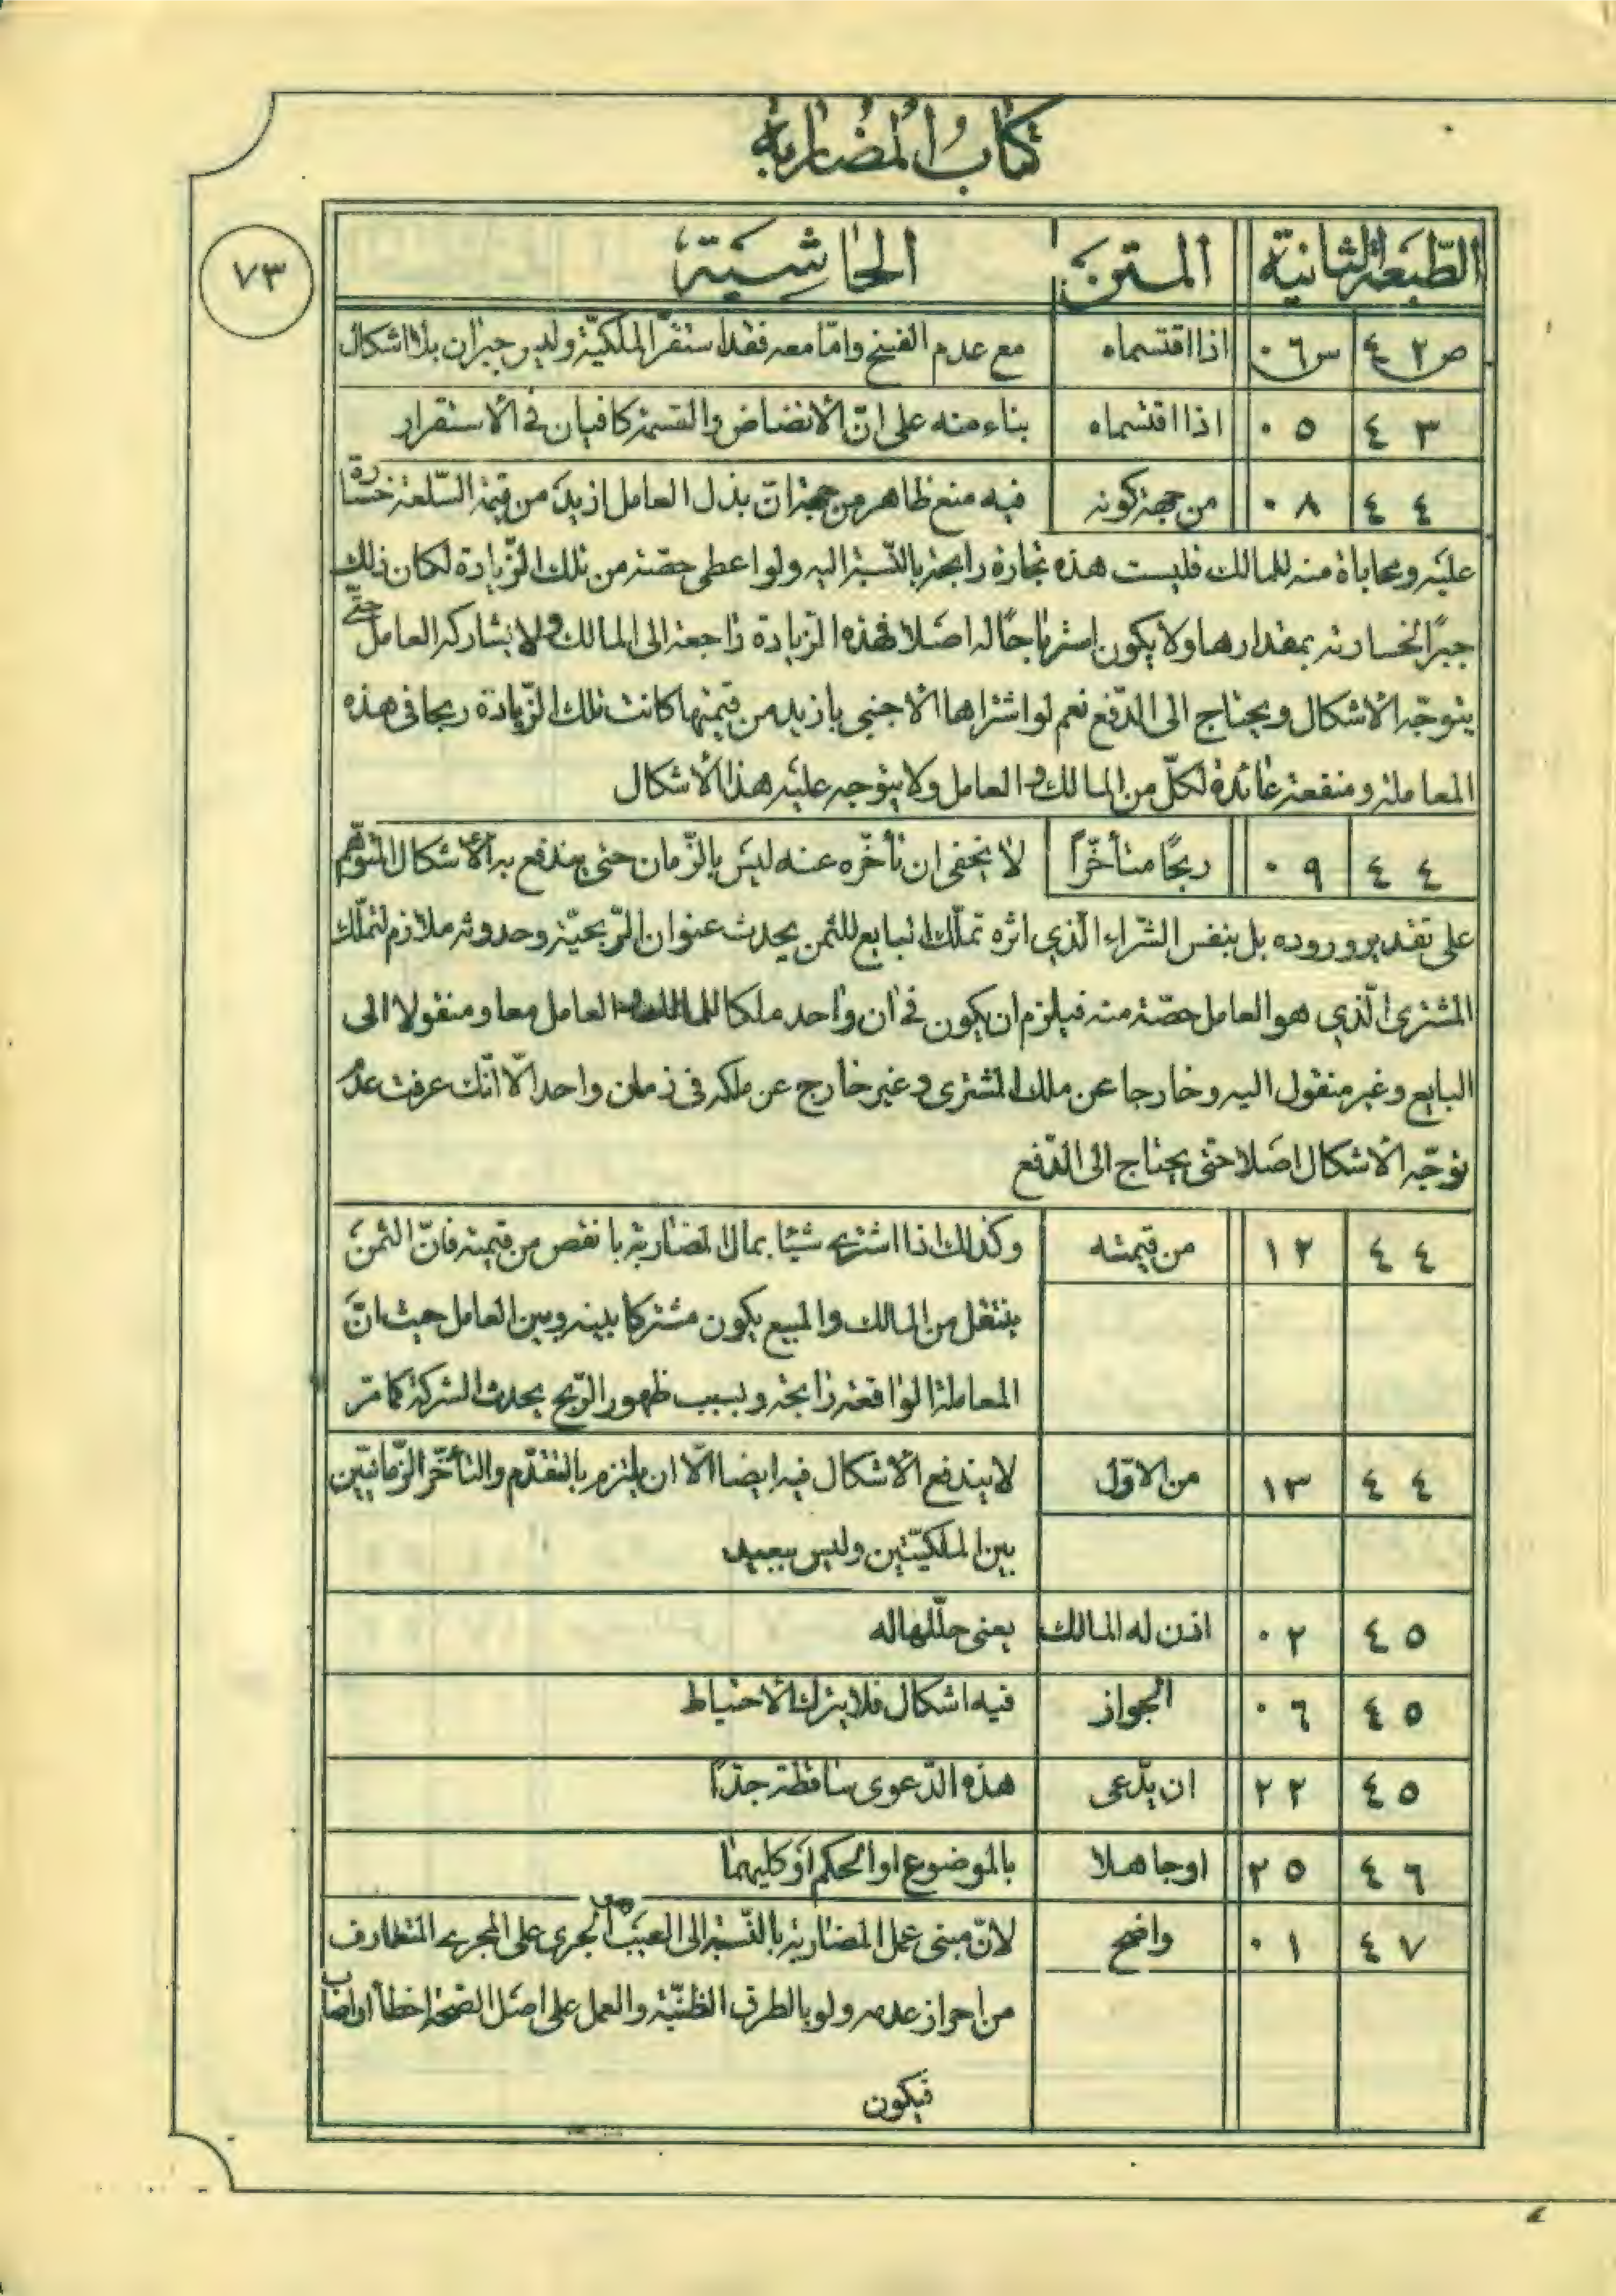 كتاب المضاربة
٧٣
الطبعة الثانية المتن الحاشية
ص ٤٢ س ٠٦ اذا اقتسماه مع عدم الفسخ وامّا معه فقد استقرّ الملكيّة وليس جبران بلا اشكال
٤٣ ٠٥ اذا اقتسماه بناء منه على انّ الانضاض والقسمة كافيان في الاستقرار
٤٤ ٠٨ من جهة كونه فيه منع ظاهر من جهة انّ بذل العامل ازيد من قيمة السّلعة خسارة
عليه ومحاباة منه للمالك فليست هذه تجارة رابحة بالنّسبة اليه ولو اعطى حصّة من تلك الزّيادة لكان ذلك
جبرًا لخسارته بمقدارها ولا يكون استرباحًا له اصلا فهذه الزيادة راجعة الى المالك ولا يشاركه العامل حتّى
يتوجّه الاشكال ويحتاج الى الدّفع نعم لو اشتراها الاجنبي بازيد من قيمتها كانت تلك الزّيادة ربحا في هذه
المعاملة ومنفعة عائدة لكلّ من المالك والعامل ولا يتوجه عليه هذا الاشكال
٤٤ ٠٩ ربحًا متأخّرًا لا يخفى ان تأخّره عنه ليس بالزّمان حتى يندفع به الاشكال المتوهّم
على تقدير وروده بل بنفس الشّراء الّذي اثره تملّك البايع للثمن يحدث عنوان الرّبحيّة وحدوثه ملازم لتملّك
المشترى الّذي هو العامل حصّة منه فيلزم ان يكون في ان واحد ملكا للمالك والعامل معا ومنقولا الى
البايع وغير منقول اليه وخارجا عن ملك المشترى وغير خارج عن ملكه في زمان واحد الّا انّك عرفت عدم
توجّه الاشكال اصلا حتى يحتاج الى الدّفع
٤٤ ١٢ من قيمته وكذلك اذا اشترى شيئا بمال المضاربة بانقص من قيمته فانّ الثمن
ينتقل من المالك والمبيع يكون مشتركا بينه وبين العامل حيث انّ
المعاملة الواقعة رابحة وبسبب ظهور الرّبح يحدث الشركة كما مرّ
٤٤ ١٣ من الاوّل لا يندفع الاشكال فيه ايضا الّا ان يلتزم بالتقدّم والتأخّر الزّمانيّين
بين الملكيّتين وليس ببعيد
٤٥ ٠٢ اذن له المالك يعنى حلّلها له
٤٥ ٠٦ الجواز فيه اشكال فلا يترك الاحتياط
٤٥ ٢٢ ان يدّعى هذه الدّعوى ساقطة جدّا
٤٦ ٢٥ او جاهلا بالموضوع او الحكم او كليهما
٤٧ ٠١ واضح لانّ مبنى عمل المضاربة بالنّسبة الى العيب هى الجرى على المجرى المتعارف
من احراز عدمه ولو بالطرق الظنّيّة والعمل على اصل الصّحّة اخطأ او اصاب
فيكون